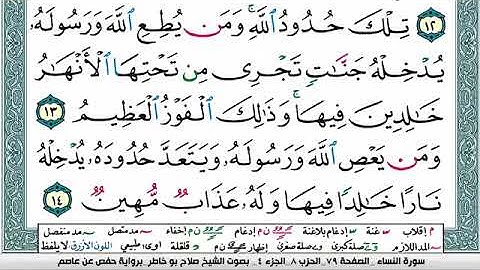 ١٢ تِلْكَ حُدُودُ ٱللَّهِ ۚ وَمَن يُطِعِ ٱللَّهَ وَرَسُولَهُۥ
يُدْخِلْهُ جَنَّـٰتٍ تَجْرِى مِن تَحْتِهَا ٱلْأَنْهَـٰرُ
خَـٰلِدِينَ فِيهَا ۚ وَذَٰلِكَ ٱلْفَوْزُ ٱلْعَظِيمُ ١٣
وَمَن يَعْصِ ٱللَّهَ وَرَسُولَهُۥ وَيَتَعَدَّ حُدُودَهُۥ يُدْخِلْهُ
نَارًا خَـٰلِدًا فِيهَا وَلَهُۥ عَذَابٌ مُّهِينٌ ١٤
م إقلاب غنة إدغام بلاغنة ن م إدغام إخفاء مد متصل مد منفصل
المد اللازم صلة كبرى وصلة صغرى إظهار ن م قلقلة اوى طبيعي اللون الأزرق لا يلفظ
سورة النساء الصفحة ٧٩ الحزب ٨ الجزء ٤ بصوت الشيخ صلاح بو خاطر برواية حفص عن عاصم